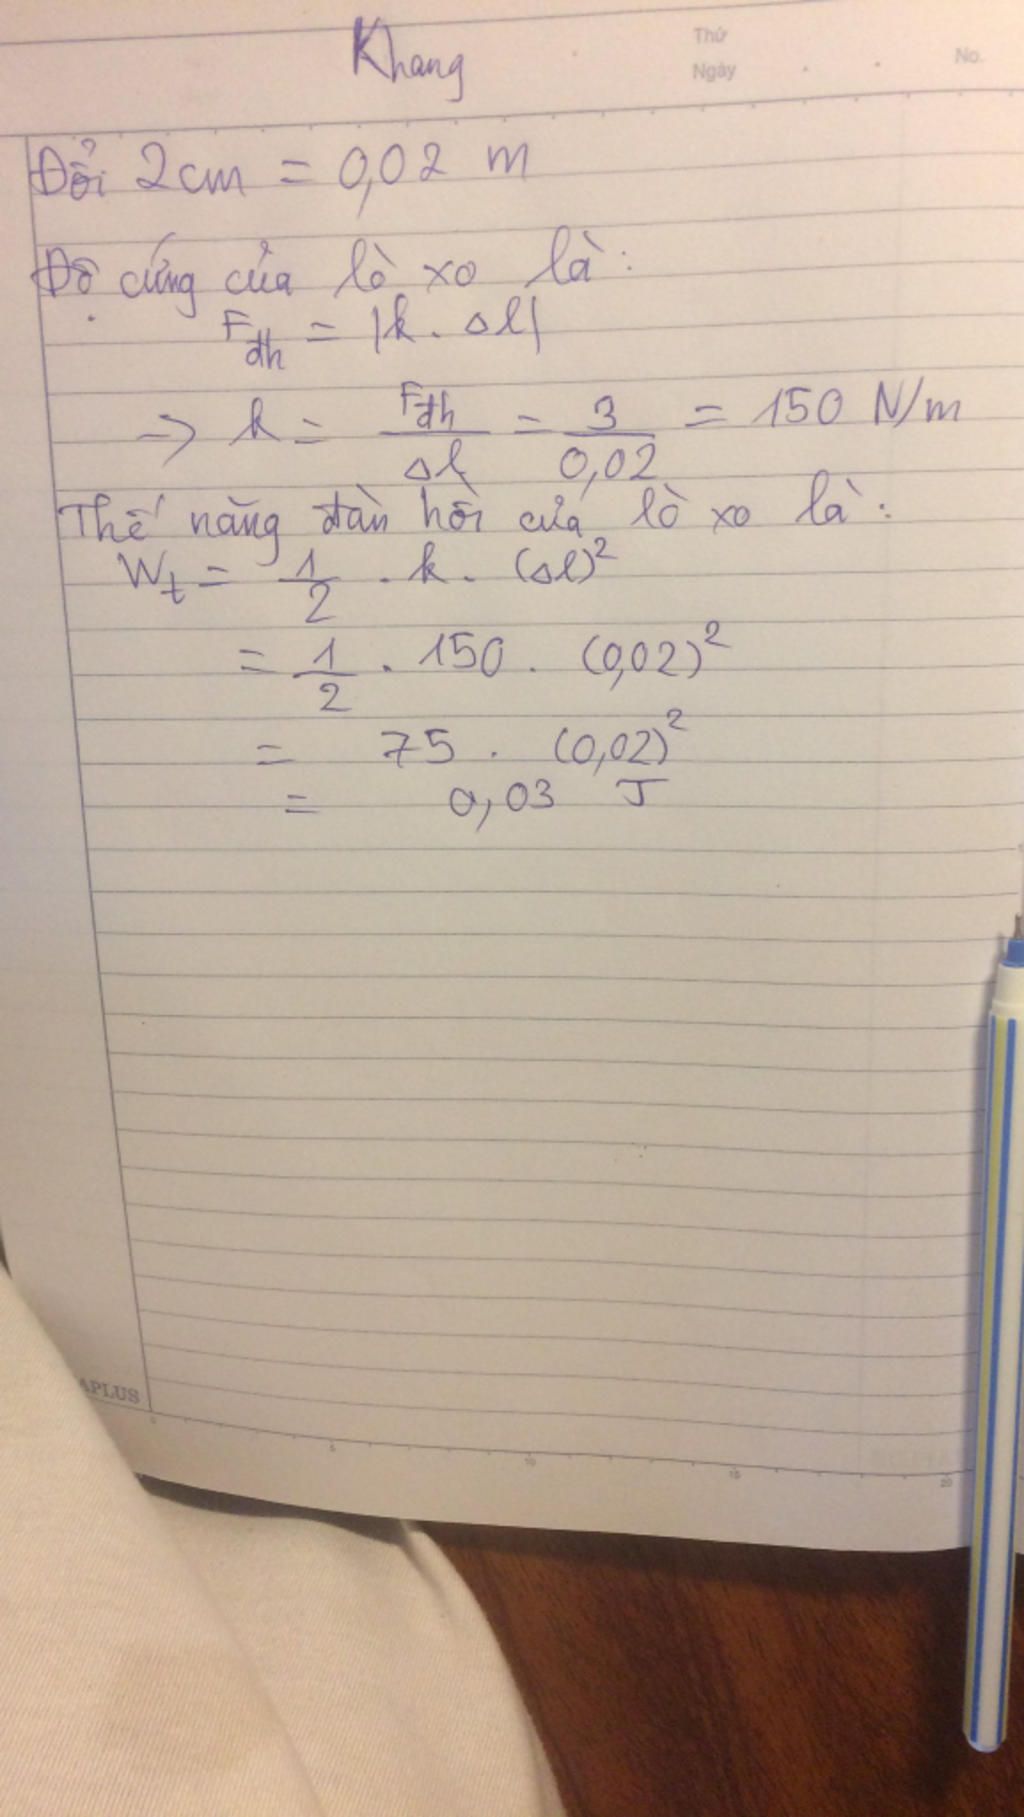 Khang
Thứ
Ngày
No.
Đổi 2cm = 0,02 m
Độ cứng của lò xo là:
Fđh = |k. Δl|
→ k = Fđh/Δl = 3/0,02 = 150 N/m
Thế năng đàn hồi của lò xo là:
Wt = 1/2 . k. (Δl)²
= 1/2 . 150 . (0,02)²
= 75 . (0,02)²
= 0,03 J
APLUS
0 5 10 15 20